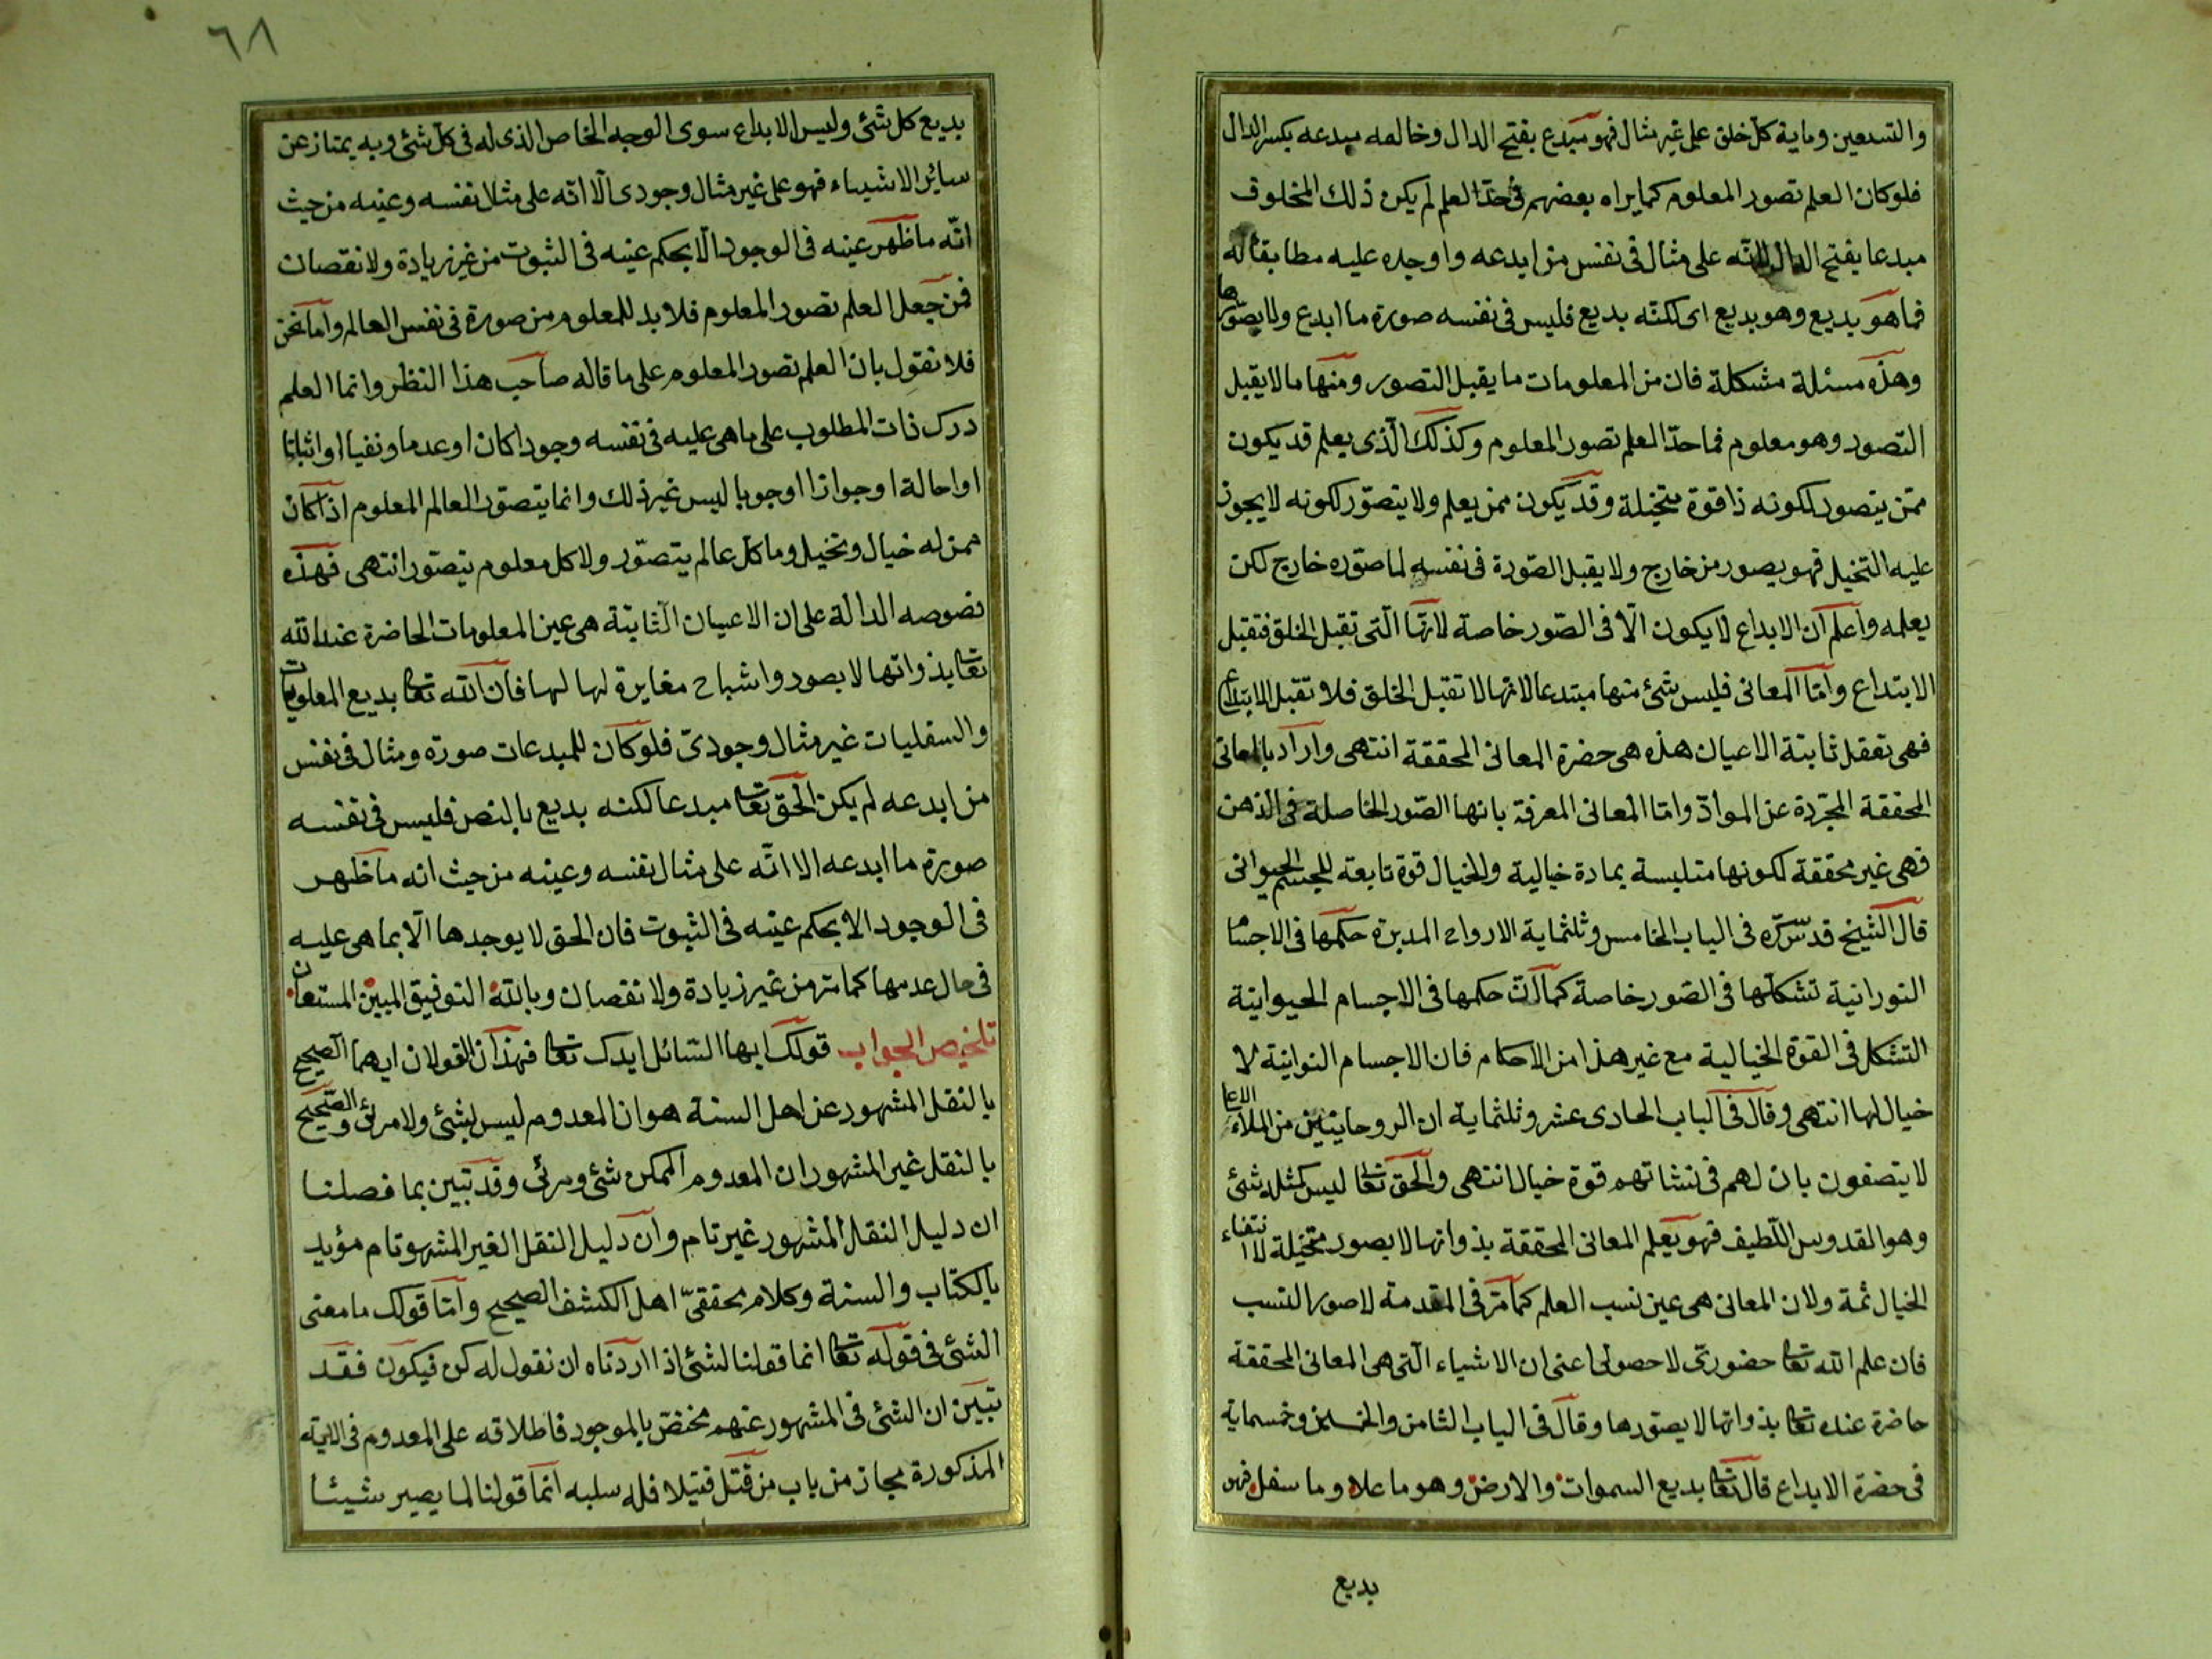 والتسعين وماية كل خلق على غير مثال فهو مبدع بفتح الدال وخالقه مبدعه بكسر الدال
فلو كان العلم تصور المعلوم كما يراه بعضهم فى حدّ العلم لم يكن ذلك المخلوق
مبدعا بفتح الدال لانّه على مثال فى نفس من ابدعه واوجده عليه مطابقا له
فما هو بديع وهو بديع اى لكنّه بديع فليس فى نفسه صورة ما ابدع ولا تصوّرها
وهذه مسئلة مشكلة فان من المعلومات ما يقبل التصور ومنها ما لا يقبل
التصور وهو معلوم فما حدّ العلم تصور المعلوم وكذلك الّذى يعلم قد يكون
ممّن يتصور لكونه ذا قوة متخيلة وقد يكون ممن يعلم ولا يتصوّر لكونه لا يجوز
عليه التخيل فهو يصور من خارج ولا يقبل الصّورة فى نفسه لما صوّره خارج لكن
يعلمه واعلم ان الابداع لا يكون الّا فى الصّور خاصة لانّها الّتى تقبل الخلق فتقبل
الابتداع وامّا المعانى فليس شئ منها مبتدعا لانها لا تقبل الخلق فلا تقبل الابتداع
فهى تعقل ثابتة الاعيان هذه هى حضرة المعانى المحققة انتهى واراد بالمعانى
المحققة المجرّدة عن الموادّ وامّا المعانى المعرفة بانها الصّور الحاصلة فى الذهن
فهى غير محققة لكونها متلبسة بمادة خيالية والخيال قوة تابعة للجسم الحيوانى
قال الشيخ قدّس سرّه فى الباب الخامس وثلثماية الارواح المدبرة حكمها فى الاجسام
النورانية تشكلها فى الصّور خاصة كما انّ حكمها فى الاجسام الحيوانية
التشكل فى القوة الخيالية مع غير هذا من الاحكام فان الاجسام النوانية لا
خيال لها انتهى وقال فى الباب الحادى عشر وثلثماية ان الروحانيين من الملاء الاعلا
لا يتصفون بان لهم فى نشاتهم قوة خيال انتهى والحق تعا ليس كمثله شئ
وهو القدوس اللّطيف فهو يعلم المعانى المحققة بذواتها لا بصور متخيلة لانتفاء
الخيال ثمة ولان المعانى هى عين نسب العلم كما مرّ فى المقدمة لا صور النسب
فان علم الله تعا حضورىّ لا حصولى اعنى ان الاشياء الّتى هى المعانى المحققة
حاضرة عنده تعا بذواتها لا بصورها وقال فى الباب الثامن والخمسين وخمسماية
فى حضرة الابداع قال تعا بديع السموات والارض وهو ما علا وما سفل فهو
بديع
٦٨
بديع كل شئ وليس الابداع سوى الوجه الخاص الذى له فى كل شئ وبه يمتاز عن
سائر الاشياء فهو على غير مثال وجودى الّا انّه على مثال نفسه وعينه من حيث
انّه ما ظهر عينه فى الوجود الّا بحكم عينه فى الثبوت من غير زيادة ولا نقصان
فمن جعل العلم تصور المعلوم فلا بد للمعلوم من صورة فى نفس العالم واما نحن
فلا نقول بان العلم تصور المعلوم على ما قاله صاحب هذا النظر وانما العلم
درك ذات المطلوب على ما هى عليه فى نفسه وجودا كان او عدما ونفيا او اثباتا
او احالة او جوازا او وجوبا ليس غير ذلك وانما يتصوّر العالم المعلوم اذا كان
ممن له خيال وتخيل وما كل عالم يتصوّر ولا كل معلوم يتصوّر انتهى فهذه
نصوصه الدالة على ان الاعيان الثابتة هى عين المعلومات الحاضرة عند الله
تعا بذواتها لا بصور واشباح مغايرة لها لها فان الله تعا بديع المعلويات
والسفليات غير مثال وجودىّ فلو كان للمبدعات صورة ومثال فى نفس
من ابدعه لم يكن الحق تعا مبدعا لكنه بديع بالنص فليس فى نفسه
صورة ما ابدعه الا انّه على مثال نفسه وعينه من حيث انه ما ظهر
فى الوجود الا بحكم عينه فى الثبوت فان الحق لا يوجدها الّا بما هى عليه
فى حال عدمها كما مرّ من غير زيادة ولا نقصان وبالله التوفيق المبين المستعان
تلخيص الجواب قولك ايها السّائل ايدك تعا فهذان القولان ايهما الصحيح
بالنقل المشهور عن اهل السنة هو ان المعدوم ليس بشئ ولا مرئى والصّحيح
بالنقل غير المشهور ان المعدوم الممكن شئ ومرئى وقد تبين بما فصلنا
ان دليل النقل المشهور غير تام وان دليل النقل الغير المشهو تام مؤيد
بالكتاب والسنة وكلام محققىّ اهل الكشف الصحيح وامّا قولك ما معنى
الشئ فى قوله تعا انما قولنا لشئ اذا اردناه ان نقول له كن فيكون فقد
تبيّن ان الشئ فى المشهور عنهم مختصّ بالموجود فاطلاقه على المعدوم فى الاية
المذكورة مجاز من باب من قتل قتيلا فله سلبه انّما قولنا لما يصير شيئا